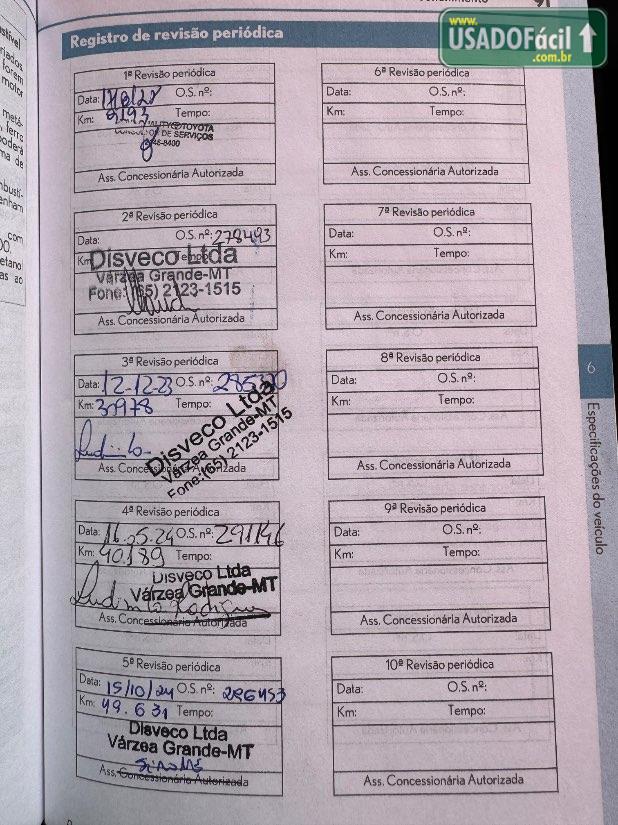 91
www.
USADOFácil
.com.br
Registro de revisão periódica
1ª Revisão periódica
Data: O.S. nº:
Km: 9193 Tempo:
TOYOTA
DE SERVIÇOS
Ass. Concessionária Autorizada
2ª Revisão periódica
Data: O.S. nº: 278493
Km: Tempo:
Disveco Ltda
Várzea Grande-MT
Fone: (65) 2123-1515
Ass. Concessionária Autorizada
3ª Revisão periódica
Data: 12-12-23 O.S. nº:
Km: 30978 Tempo:
Disveco Ltda
Várzea Grande-MT
Fone: (65) 2123-1515
Ass. Concessionária Autorizada
4ª Revisão periódica
Data: 16.05.24 O.S. nº: 291146
Km: 40.189 Tempo:
Disveco Ltda
Várzea Grande-MT
Ass. Concessionária Autorizada
5ª Revisão periódica
Data: 15/10/24 O.S. nº: 296453
Km: 49.631 Tempo:
Disveco Ltda
Várzea Grande-MT
Ass. Concessionária Autorizada
6ª Revisão periódica
Data: O.S. nº:
Km: Tempo:
Ass. Concessionária Autorizada
7ª Revisão periódica
Data: O.S. nº:
Km: Tempo:
Ass. Concessionária Autorizada
8ª Revisão periódica
Data: O.S. nº:
Km: Tempo:
Ass. Concessionária Autorizada
9ª Revisão periódica
Data: O.S. nº:
Km: Tempo:
Ass. Concessionária Autorizada
10ª Revisão periódica
Data: O.S. nº:
Km: Tempo:
Ass. Concessionária Autorizada
6
Especificações do veículo